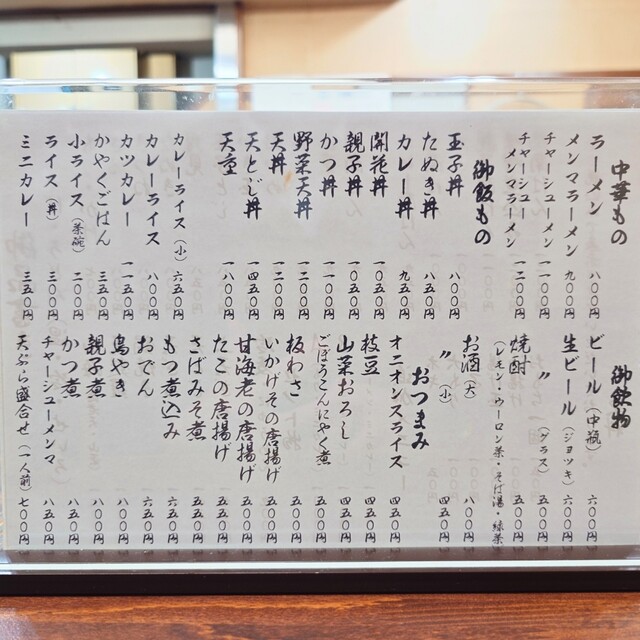 中華もの
ラーメン 八〇〇円
メンマラーメン 九〇〇円
チャーシューメン 一一〇〇円
チャーシューメンマラーメン 一二〇〇円
御飯もの
玉子丼 八〇〇円
たぬき丼 八五〇円
カレー丼 九五〇円
開花丼 一〇五〇円
親子丼 一〇〇〇円
かつ丼 一一〇〇円
野菜天丼 一二〇〇円
天丼 一二〇〇円
天とじ丼 一四五〇円
天重 一八〇〇円
カレーライス（小） 六五〇円
カレーライス 八〇〇円
カツカレー 一一五〇円
かやくごはん 三五〇円
小ライス（茶碗） 二〇〇円
ライス（丼） 三〇〇円
ミニカレー 三五〇円
御飲物
ビール（中瓶） 六〇〇円
生ビール（ジョッキ） 六〇〇円
〃（グラス） 五〇〇円
焼酎 五〇〇円
（レモン・ウーロン茶・そば湯・緑茶
お酒（大） 八〇〇円
〃（小） 四五〇円
おつまみ
オニオンスライス 四五〇円
枝豆 四五〇円
山菜おろし 四五〇円
ごぼうこんにゃく煮 五〇〇円
板わさ 五〇〇円
いかげその唐揚げ 五五〇円
甘海老の唐揚げ 五五〇円
たこの唐揚げ 五五〇円
さばみそ煮 五五〇円
もつ煮込み 六五〇円
おでん 六五〇円
鳥やき 八〇〇円
親子煮 八〇〇円
かつ煮 八五〇円
チャーシューメンマ 八五〇円
天ぷら盛合せ（一人前） 七〇〇円